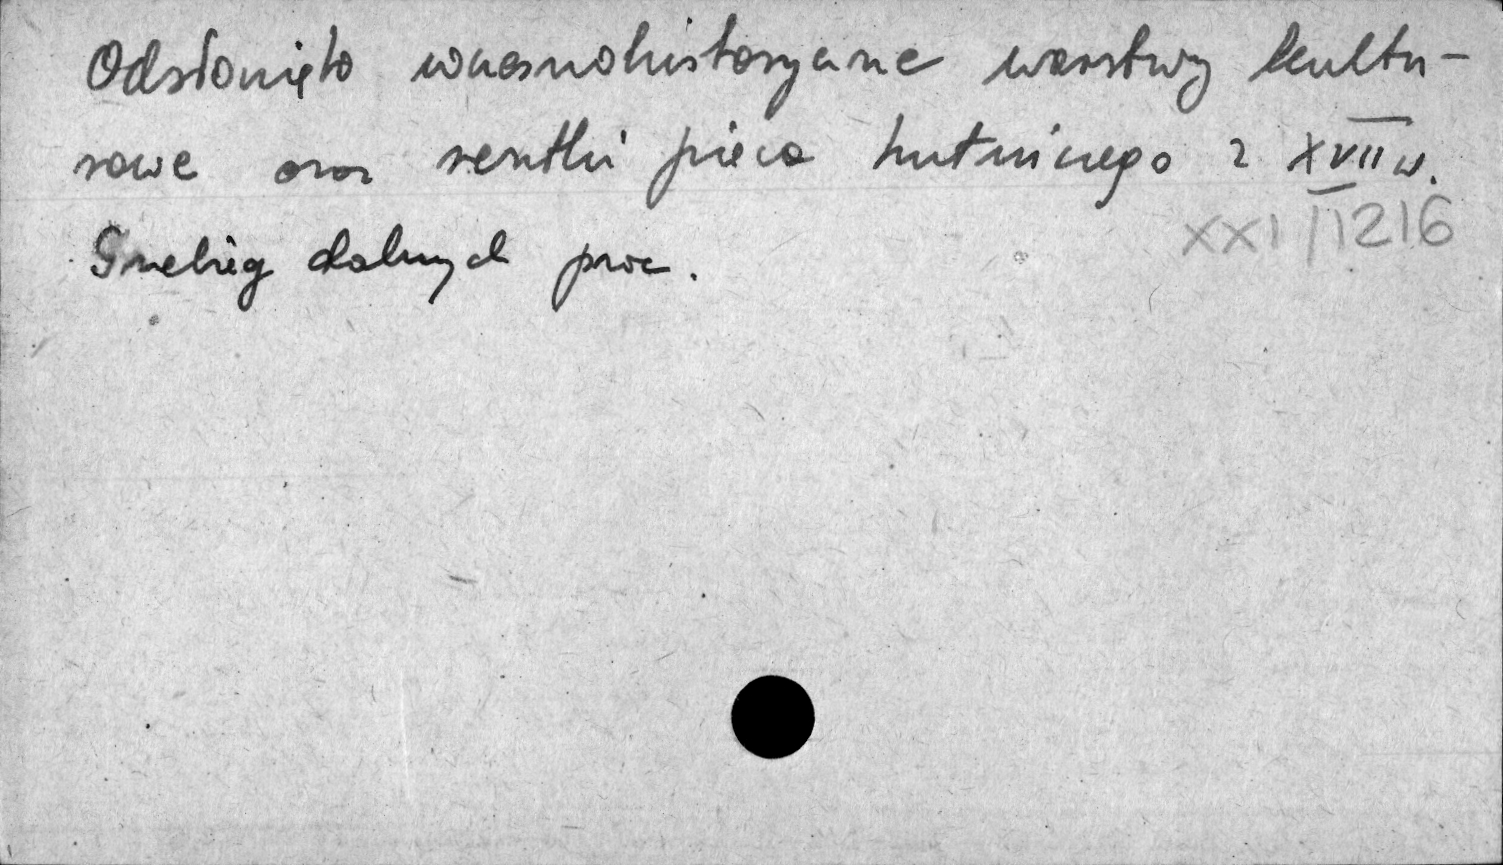 Odsłonięto wczesnohistoryczne warstwy kultu-
rowe oraz resztki pieca hutniczego z XVII w.
Przebieg dalszych prac.
XXI/1216